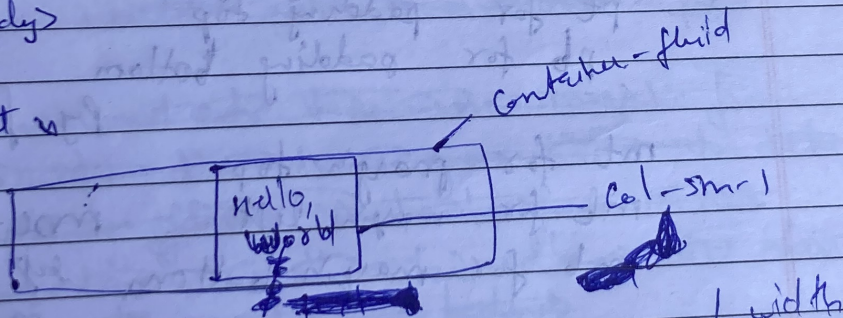 dy>
container-fluid
Hello,
world
col-sm-1
width